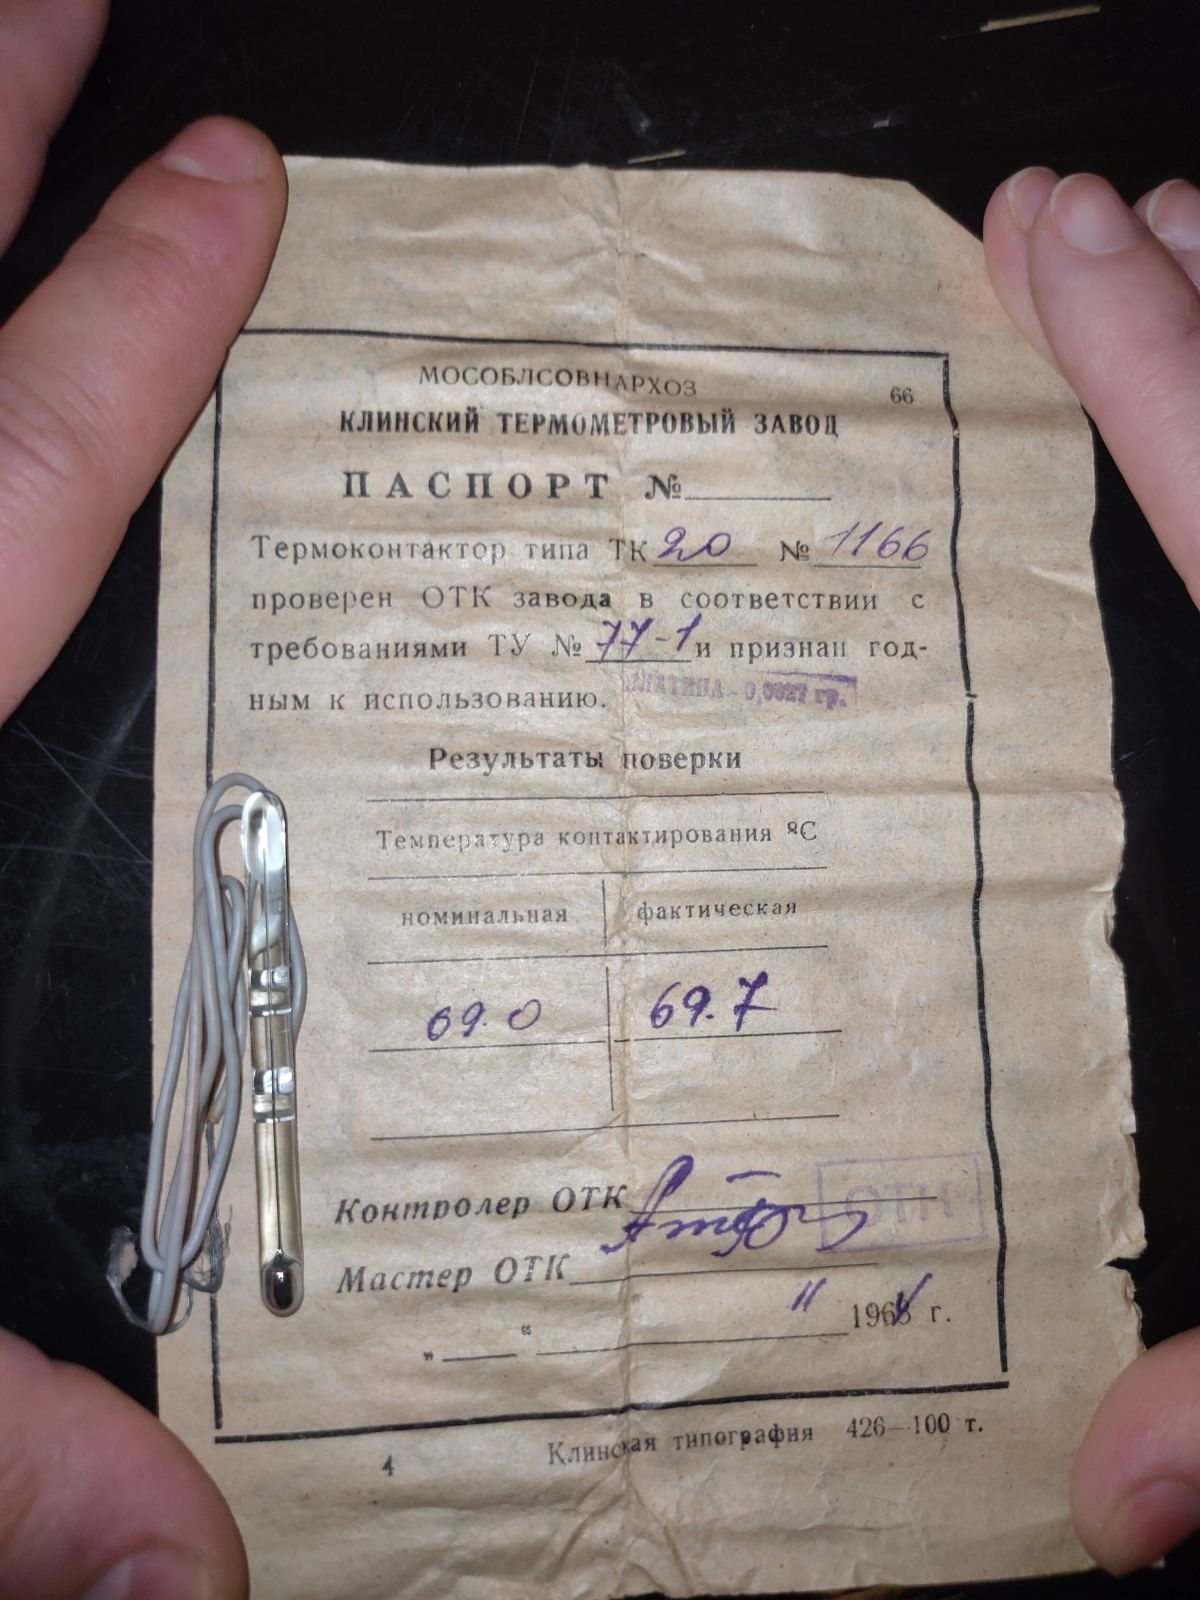 МОСОБЛСОВНАРХОЗ 66
КЛИНСКИЙ ТЕРМОМЕТРОВЫЙ ЗАВОД
ПАСПОРТ №
Термоконтактор типа ТК 20 № 1166
проверен ОТК завода в соответствии с
требованиями ТУ № 77-1 и признан год-
ным к использованию.
ПЛАТИНА - 0,0027 гр.
Результаты поверки
Температура контактирования °С
номинальная фактическая
69.0 69.7
Контролер ОТК
ОТК
Мастер ОТК
„ “ 1964 г.
4 Клинская типография 426—100 т.